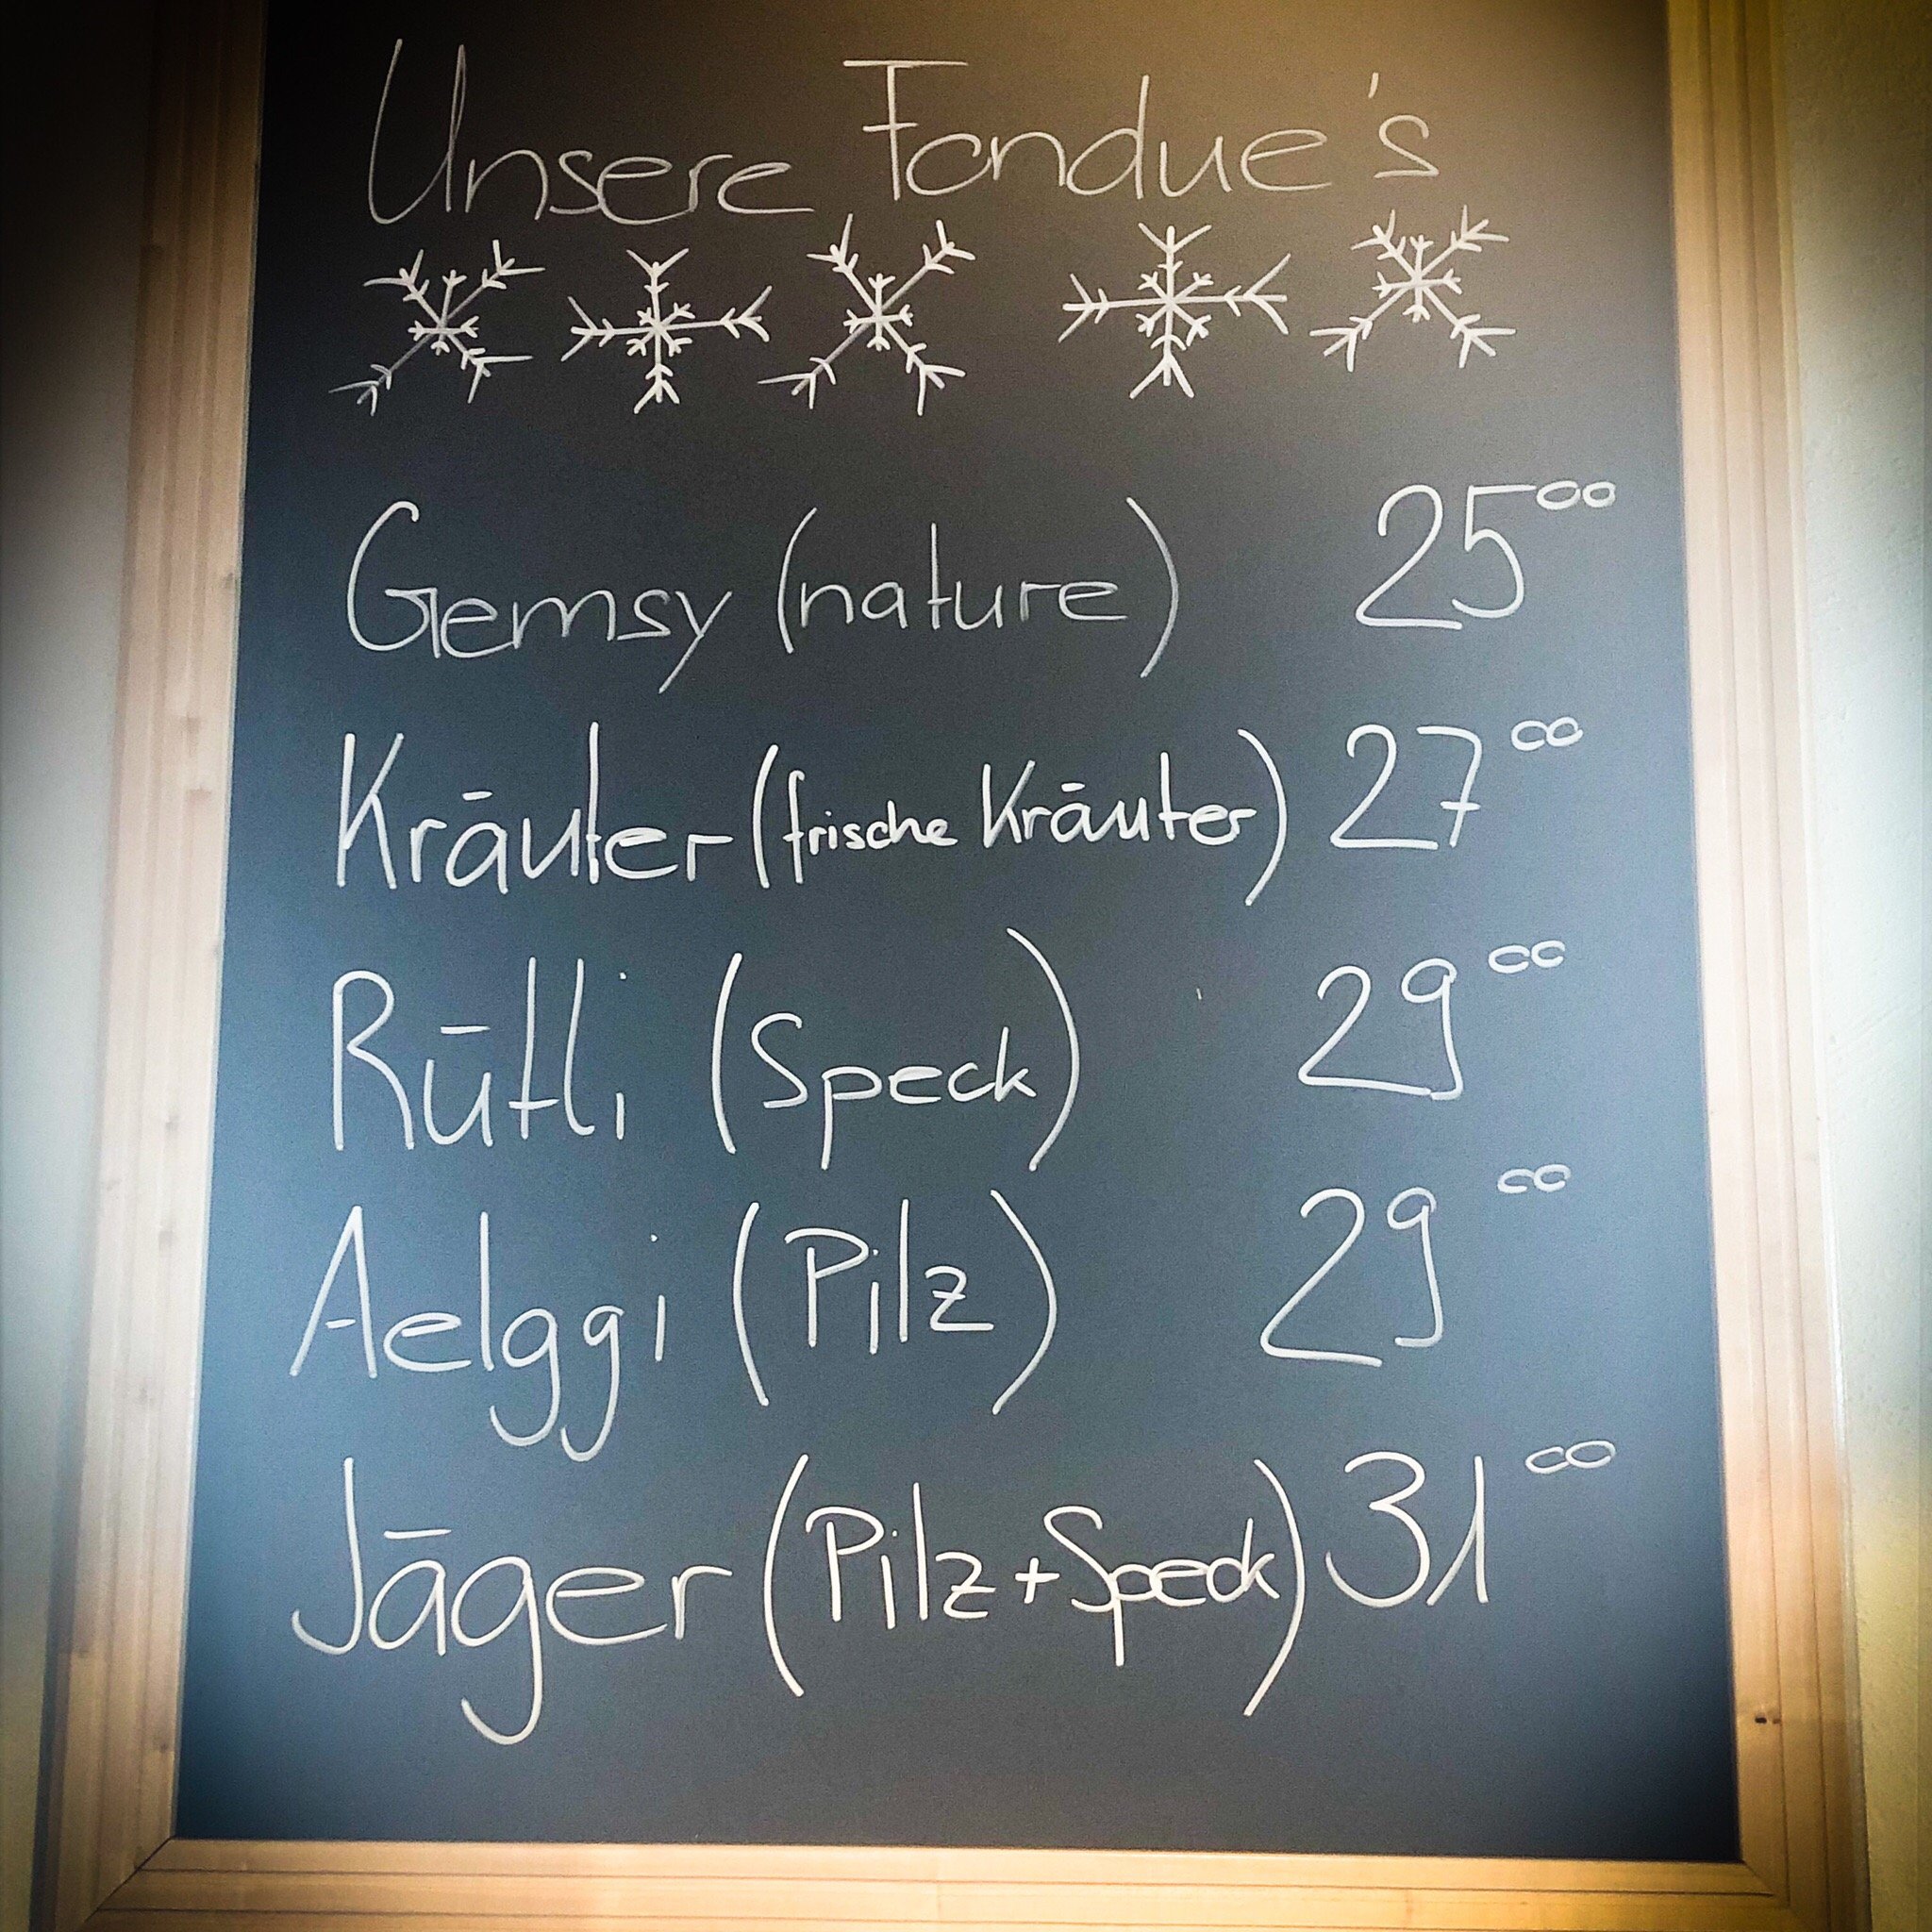 Unsere Fondue's
Gemsy (nature) 25⁰⁰
Kräuter (frische Kräuter) 27⁰⁰
Rütli (Speck) 29⁰⁰
Aelggi (Pilz) 29⁰⁰
Jäger (Pilz + Speck) 31⁰⁰